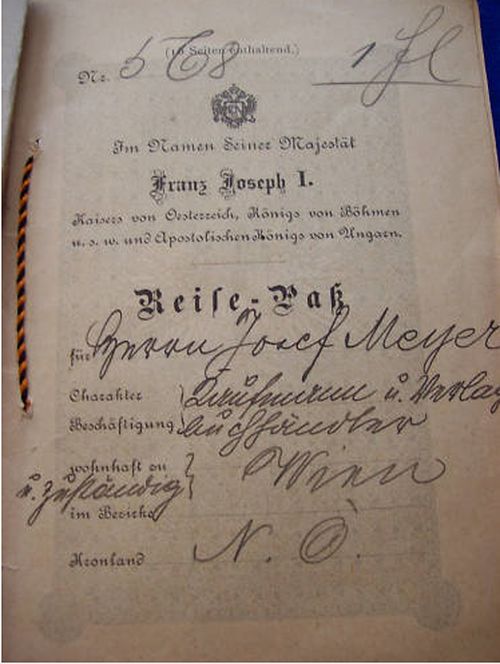 (16 Seiten enthaltend.)
Nr. 1 Fl
Im Namen Seiner Majestät
Franz Joseph I.
Kaisers von Oesterreich, Königs von Böhmen
u. s. w. und Apostolischen Königs von Ungarn.
Reise-Paß
für Herrn Josef Meyer
Charakter Kaufmann u. Verlag
Beschäftigung buchhändler
wohnhaft zu Wien
u. zuständig
im Bezirke
Kronland N. Ö.